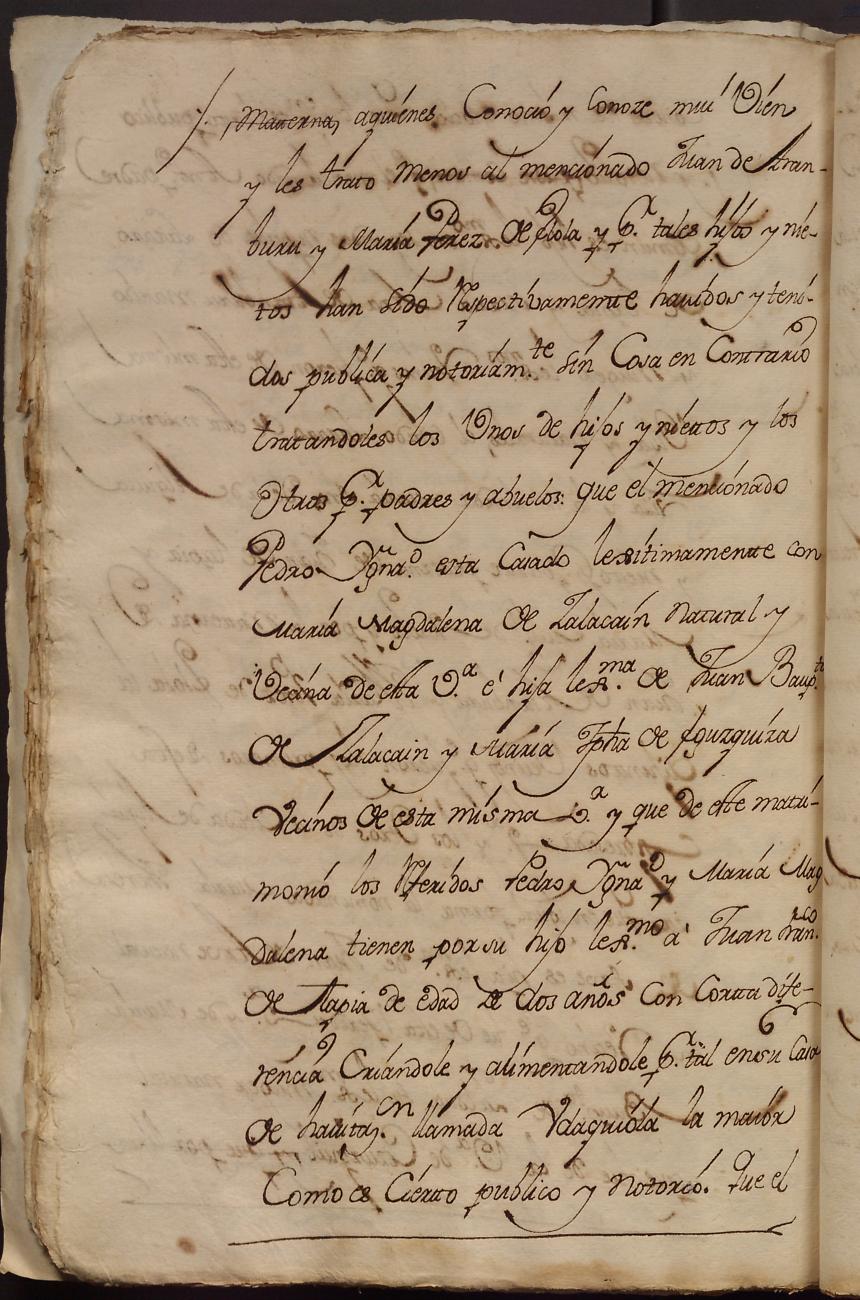 Materna, aquiénes Conoció y Conoze muí Vién
y les trato menos al mencíonado Juan de Aran-
buru y María Perez de flola y p.ʳ tales híjo y nie-
tos han Sído Rspectívamente havídos y tení-
dos publíca y notoriám.te Sín Cosa en Contrarío
tratandoles los Unos de hijos y níettos y los
Otros p.r padres y abuelos: que el mencíonado
Pedro Ygna.o esta Casado lexítimamente con
María Magdalena de Zalacaín Natural y
Vecína de esta V.a é hija lex.ma de Juan Baup.ta
de Zalacain y María Jpha de Eguzquiza
Vecínos de esta mísma V.a y que de este matri-
monío los Rferídos Pedro Ygna.o y María Mag
dalena tienen por su hijo lex.mo á Juan Fran.co
de tapia de edad de dos años Con Cortta dífe-
rencía Críándole y alímentandole p.r tal en su Casa
de havita.on llamada Vdaguíola la maíor
Como es Cíerto publico y Notorío. Que el